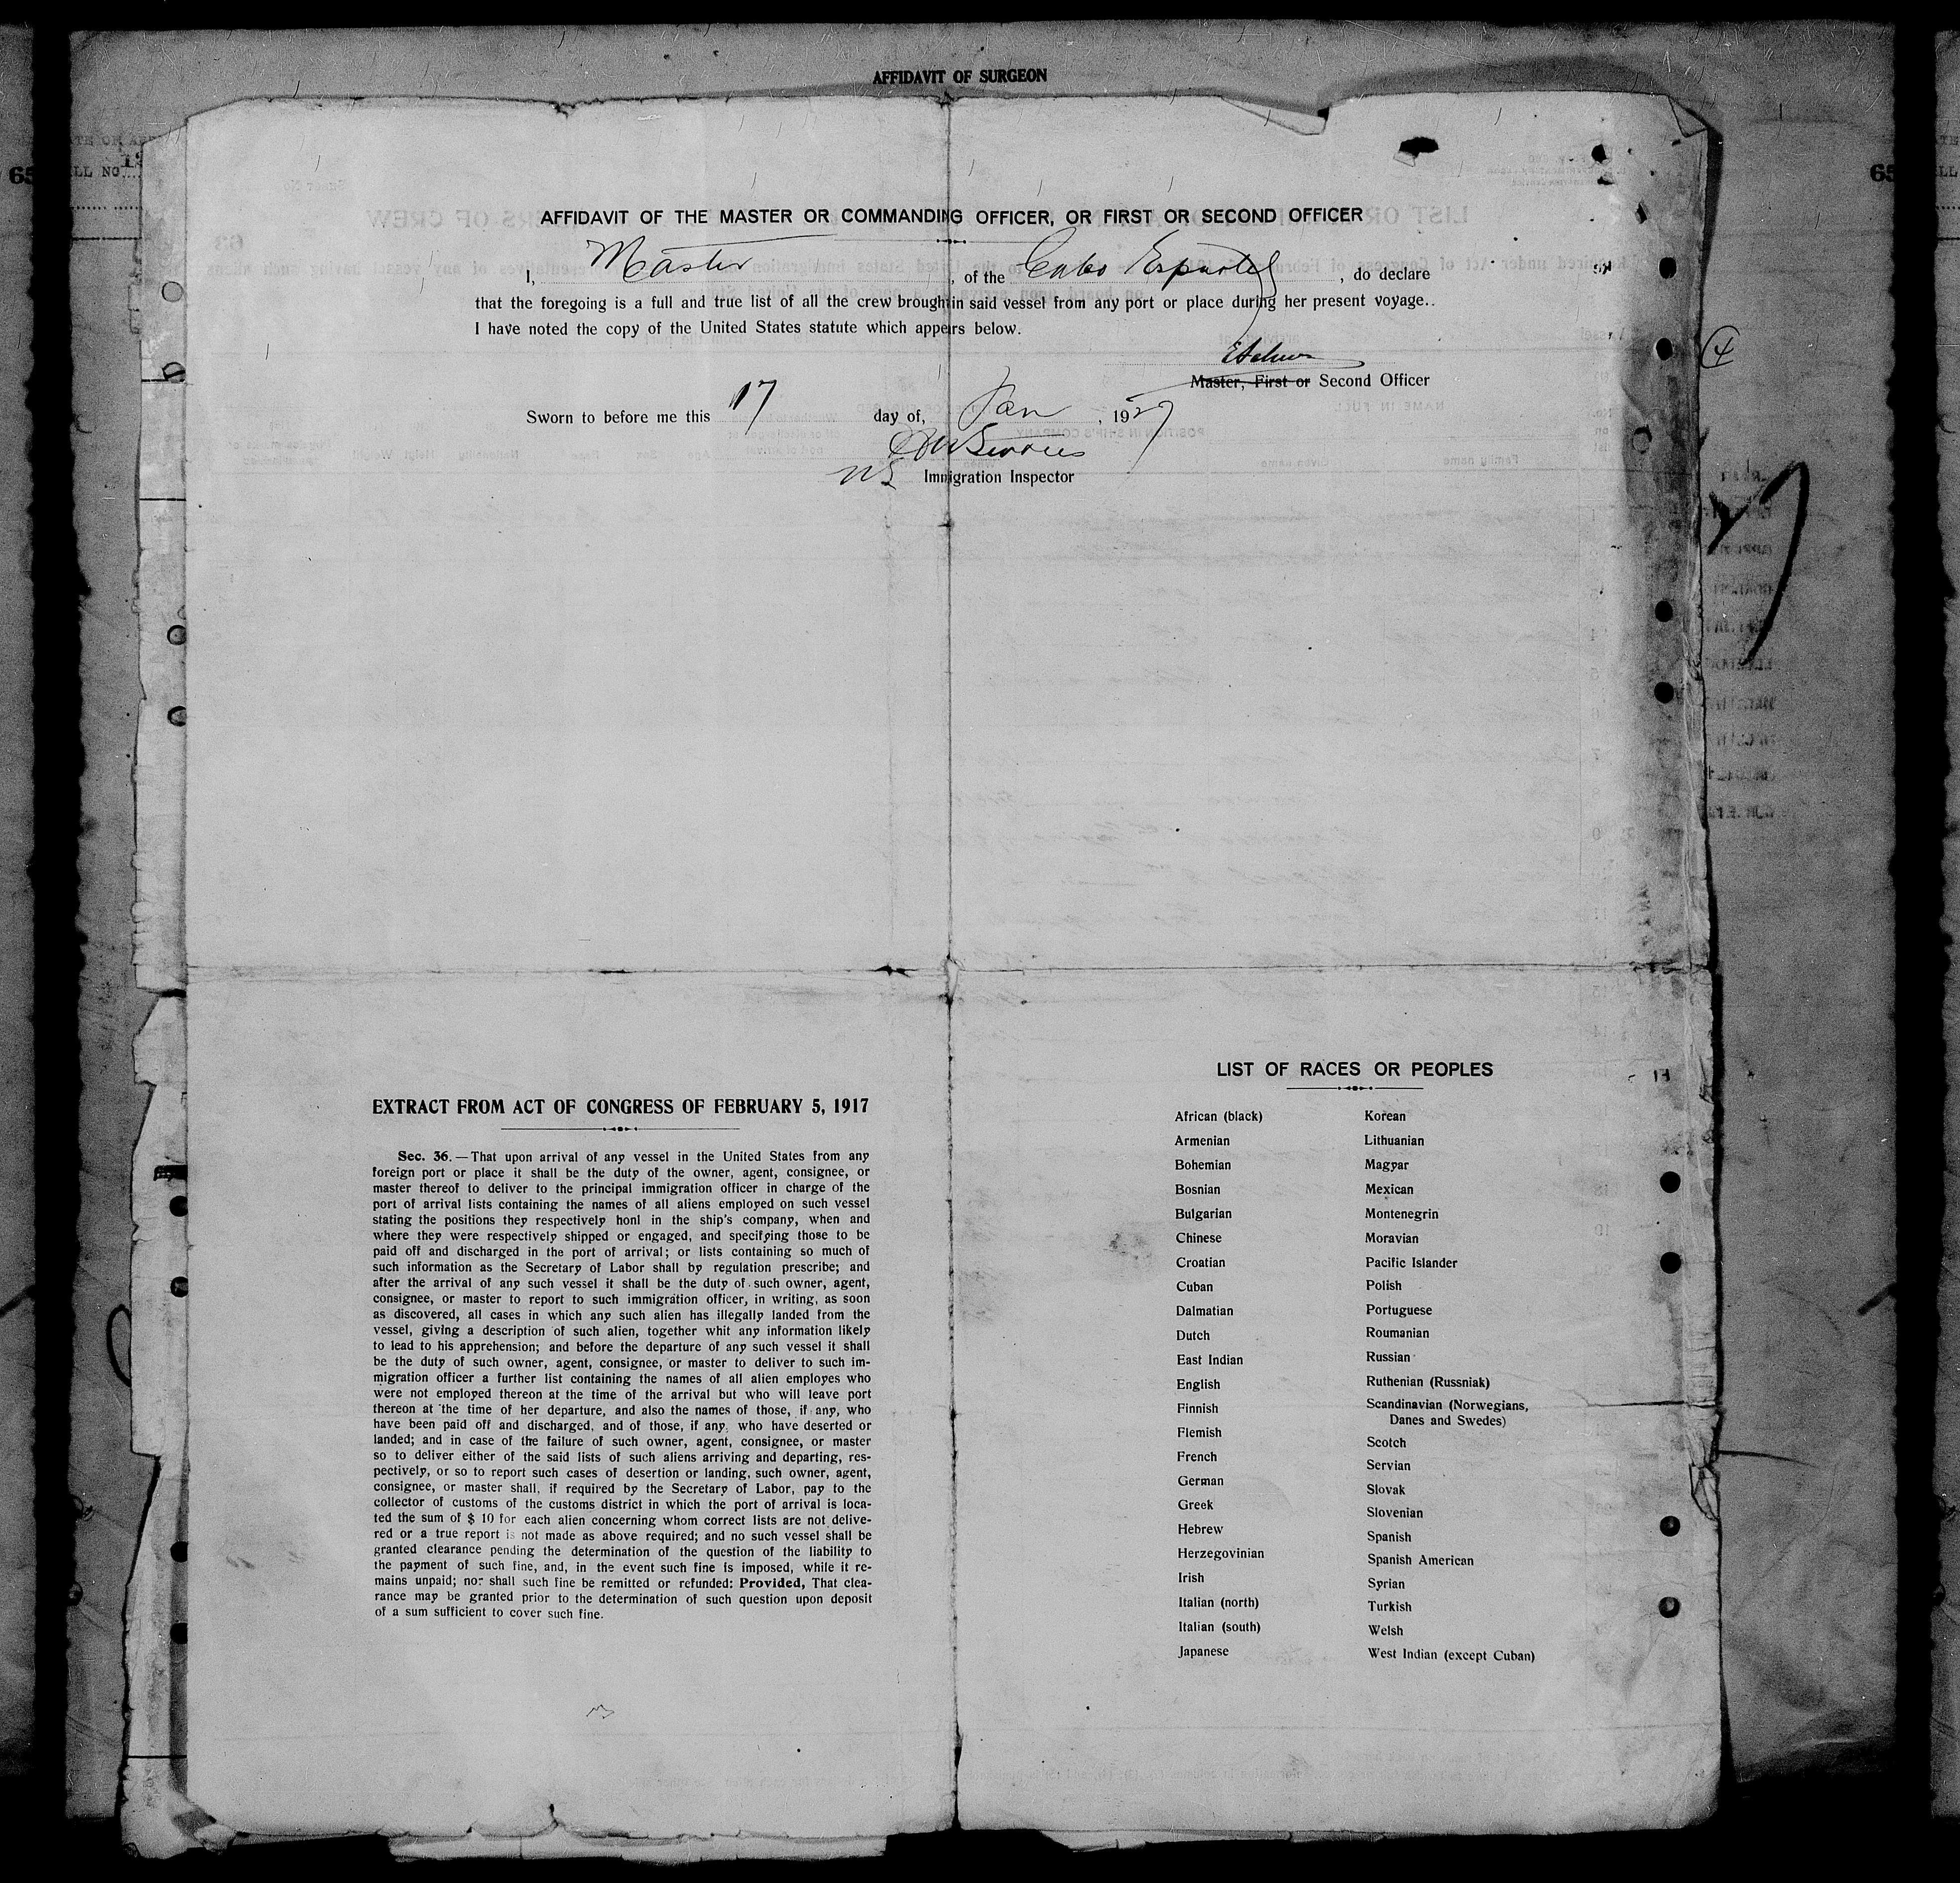 AFFIDAVIT OF SURGEON
AFFIDAVIT OF THE MASTER OR COMMANDING OFFICER, OR FIRST OR SECOND OFFICER
I, Master, of the Cabo Espartel, do declare
that the foregoing is a full and true list of all the crew brought in said vessel from any port or place during her present voyage..
I have noted the copy of the United States statute which appears below.
Master, First or Second Officer
Sworn to before me this 17 day of, Jan, 1927
Immigration Inspector
EXTRACT FROM ACT OF CONGRESS OF FEBRUARY 5, 1917
Sec. 36.—That upon arrival of any vessel in the United States from any
foreign port or place it shall be the duty of the owner, agent, consignee, or
master thereof to deliver to the principal immigration officer in charge of the
port of arrival lists containing the names of all aliens employed on such vessel
stating the positions they respectively honl in the ship's company, when and
where they were respectively shipped or engaged, and specifying those to be
paid off and discharged in the port of arrival; or lists containing so much of
such information as the Secretary of Labor shall by regulation prescribe; and
after the arrival of any such vessel it shall be the duty of such owner, agent,
consignee, or master to report to such immigration officer, in writing, as soon
as discovered, all cases in which any such alien has illegally landed from the
vessel, giving a description of such alien, together whit any information likely
to lead to his apprehension; and before the departure of any such vessel it shall
be the duty of such owner, agent, consignee, or master to deliver to such im-
migration officer a further list containing the names of all alien employes who
were not employed thereon at the time of the arrival but who will leave port
thereon at the time of her departure, and also the names of those, if any, who
have been paid off and discharged, and of those, if any, who have deserted or
landed; and in case of the failure of such owner, agent, consignee, or master
so to deliver either of the said lists of such aliens arriving and departing, res-
pectively, or so to report such cases of desertion or landing, such owner, agent,
consignee, or master shall, if required by the Secretary of Labor, pay to the
collector of customs of the customs district in which the port of arrival is loca-
ted the sum of $ 10 for each alien concerning whom correct lists are not delive-
red or a true report is not made as above required; and no such vessel shall be
granted clearance pending the determination of the question of the liability to
the payment of such fine, and, in the event such fine is imposed, while it re-
mains unpaid; nor shall such fine be remitted or refunded: Provided, That clea-
rance may be granted prior to the determination of such question upon deposit
of a sum sufficient to cover such fine.
LIST OF RACES OR PEOPLES
African (black)
Armenian
Bohemian
Bosnian
Bulgarian
Chinese
Croatian
Cuban
Dalmatian
Dutch
East Indian
English
Finnish
Flemish
French
German
Greek
Hebrew
Herzegovinian
Irish
Italian (north)
Italian (south)
Japanese
Korean
Lithuanian
Magyar
Mexican
Montenegrin
Moravian
Pacific Islander
Polish
Portuguese
Roumanian
Russian
Ruthenian (Russniak)
Scandinavian (Norwegians,
Danes and Swedes)
Scotch
Servian
Slovak
Slovenian
Spanish
Spanish American
Syrian
Turkish
Welsh
West Indian (except Cuban)